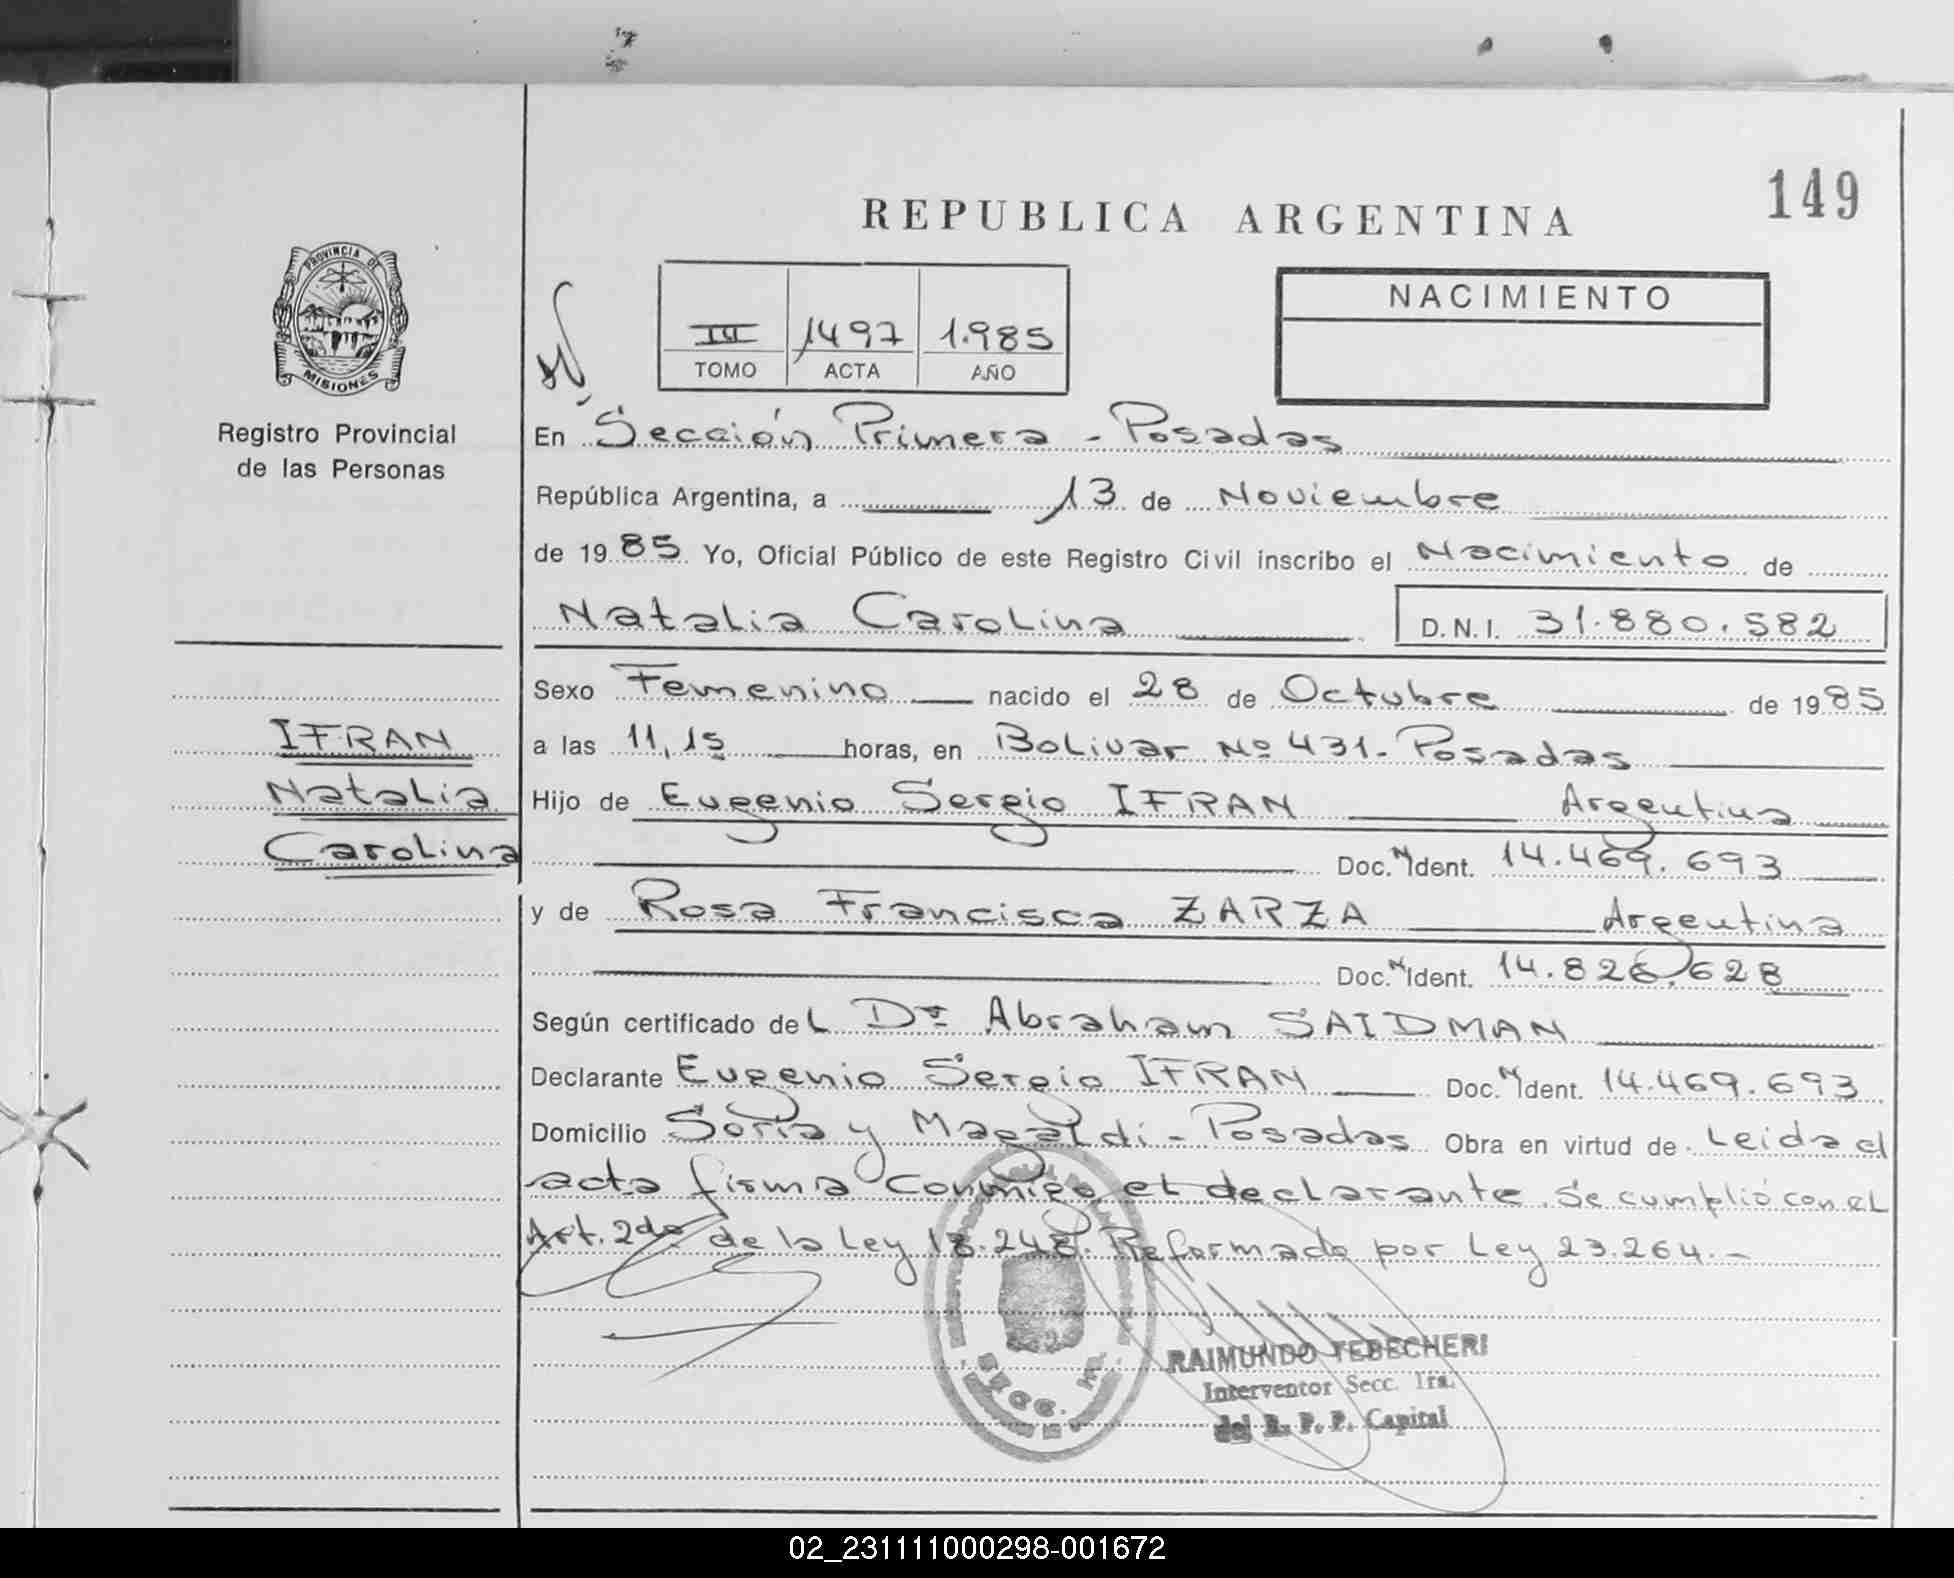 149
REPUBLICA ARGENTINA
PROVINCIA DE
MISIONES
Registro Provincial
de las Personas
III 1497 1.985
TOMO ACTA AÑO
NACIMIENTO
En Sección Primera - Posadas
República Argentina, a 13 de Noviembre
de 1985 Yo, Oficial Público de este Registro Civil inscribo el Nacimiento de
Natalia Carolina D.N.I. 31.880.582
Sexo Femenino nacido el 28 de Octubre de 1985
a las 11,15 horas, en Bolivar Nº 431.- Posadas
IFRAN
Natalia
Carolina
Hijo de Eugenio Sergio IFRAN Argentina
Doc. N Ident. 14.469.693
y de Rosa Francisca ZARZA Argentina
Doc. N Ident. 14.826.628
Según certificado del Dr Abraham SAIDMAN
Declarante Eugenio Sergio IFRAN Doc. N Ident. 14.469.693
Domicilio Soria y Magaldi - Posadas Obra en virtud de Leida el
acta firma conmigo el declarante. Se cumplió con el
Art. 2do de la Ley 18.248. Reformado por Ley 23.264.-
RAIMUNDO TEBECHERI
Interventor Secc. 1ra.
del R. P. P. Capital
02_231111000298-001672